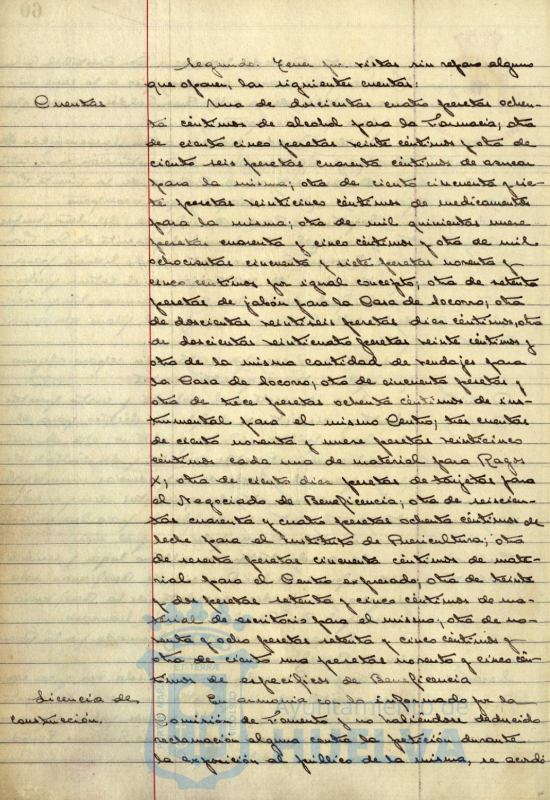 Segundo: Tener por vistas sin reparo alguno
que oponer, las siguientes cuentas:
Cuentas
Una de doscientas cuatro pesetas ochen-
ta céntimos de alcohol para la Farmacia; otra
de ciento cinco pesetas veinte céntimos y otra de
ciento seis pesetas cuarenta céntimos de azucar
para la misma; otra de ciento cincuenta y sie-
te pesetas veinticinco céntimos de medicamentos
para la misma; otra de mil quinientas nueve
pesetas cuarenta y cinco céntimos y otra de mil
ochocientas cincuenta y siete pesetas noventa y
cinco céntimos por igual concepto; otra de setenta
pesetas de jabón para la Casa de Socorro; otra
de doscientas veintiseis pesetas diez céntimos, otra
de doscientas veinticuatro pesetas veinte céntimos y
otra de la misma cantidad de vendajes para
la Casa de Socorro; otra de cincuenta pesetas y
otra de trece pesetas ochenta céntimos de ins-
trumental para el mismo Centro; tres cuentas
de ciento noventa y nueve pesetas veinticinco
céntimos cada una de material para Rayos
X; otra de ciento diez pesetas de tarjetas para
el Negociado de Beneficencia; otra de seiscien-
tas cuarenta y cuatro pesetas ochenta céntimos de
leche para el Instituto de Puericultura; otra
de sesenta pesetas cincuenta céntimos de mate-
rial para el Centro expresado; otra de treinta
y dos pesetas setenta y cinco céntimos de ma-
terial de escritorio para el mismo; otra de no-
venta y ocho pesetas setenta y cinco céntimos y
otra de ciento una pesetas noventa y cinco cén-
timos de específicos de Beneficencia
Licencia de
construcción.
En armonia con lo informado por la
Comisión de Fomento y no habiéndose deducido
reclamación alguna contra la petición durante
la exposición al público de la misma, se acordó
Ayuntamiento de
HUELVA